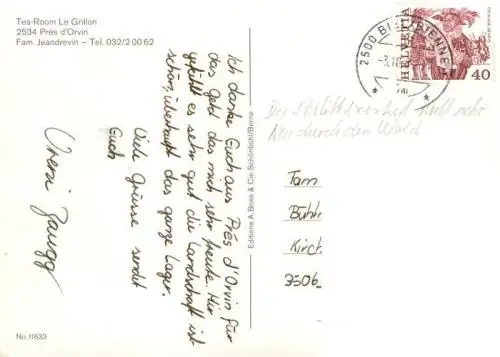 Tea-Room Le Grillon
2534 Prés d'Orvin
Fam. Jeandrevin – Tel. 032/2 00 62
Ich danke Euch aus Prés d'Orvin für
das geld das mich sehr freute. Mir
gefällt es sehr gut die Landschaft ist
schön, überhaupt das ganze Lager.
Viele Grüsse sendet
Euch
Editions A. Boss & Cie Schönbühl/Berne
2500 BIENNE
HELVETIA
40
durch den Wald
Fam
Kirch
3506
No. 11633